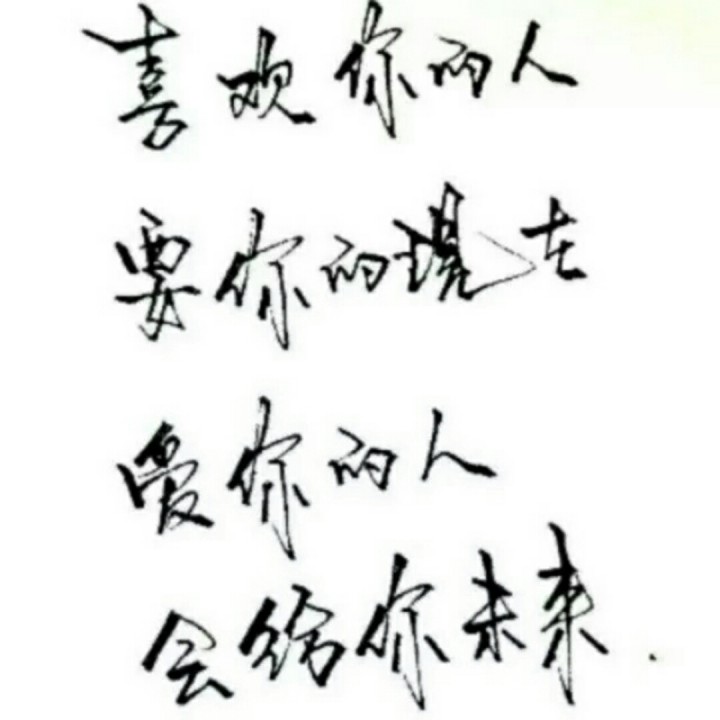 喜欢你的人
要你的现在
爱你的人
会给你未来.